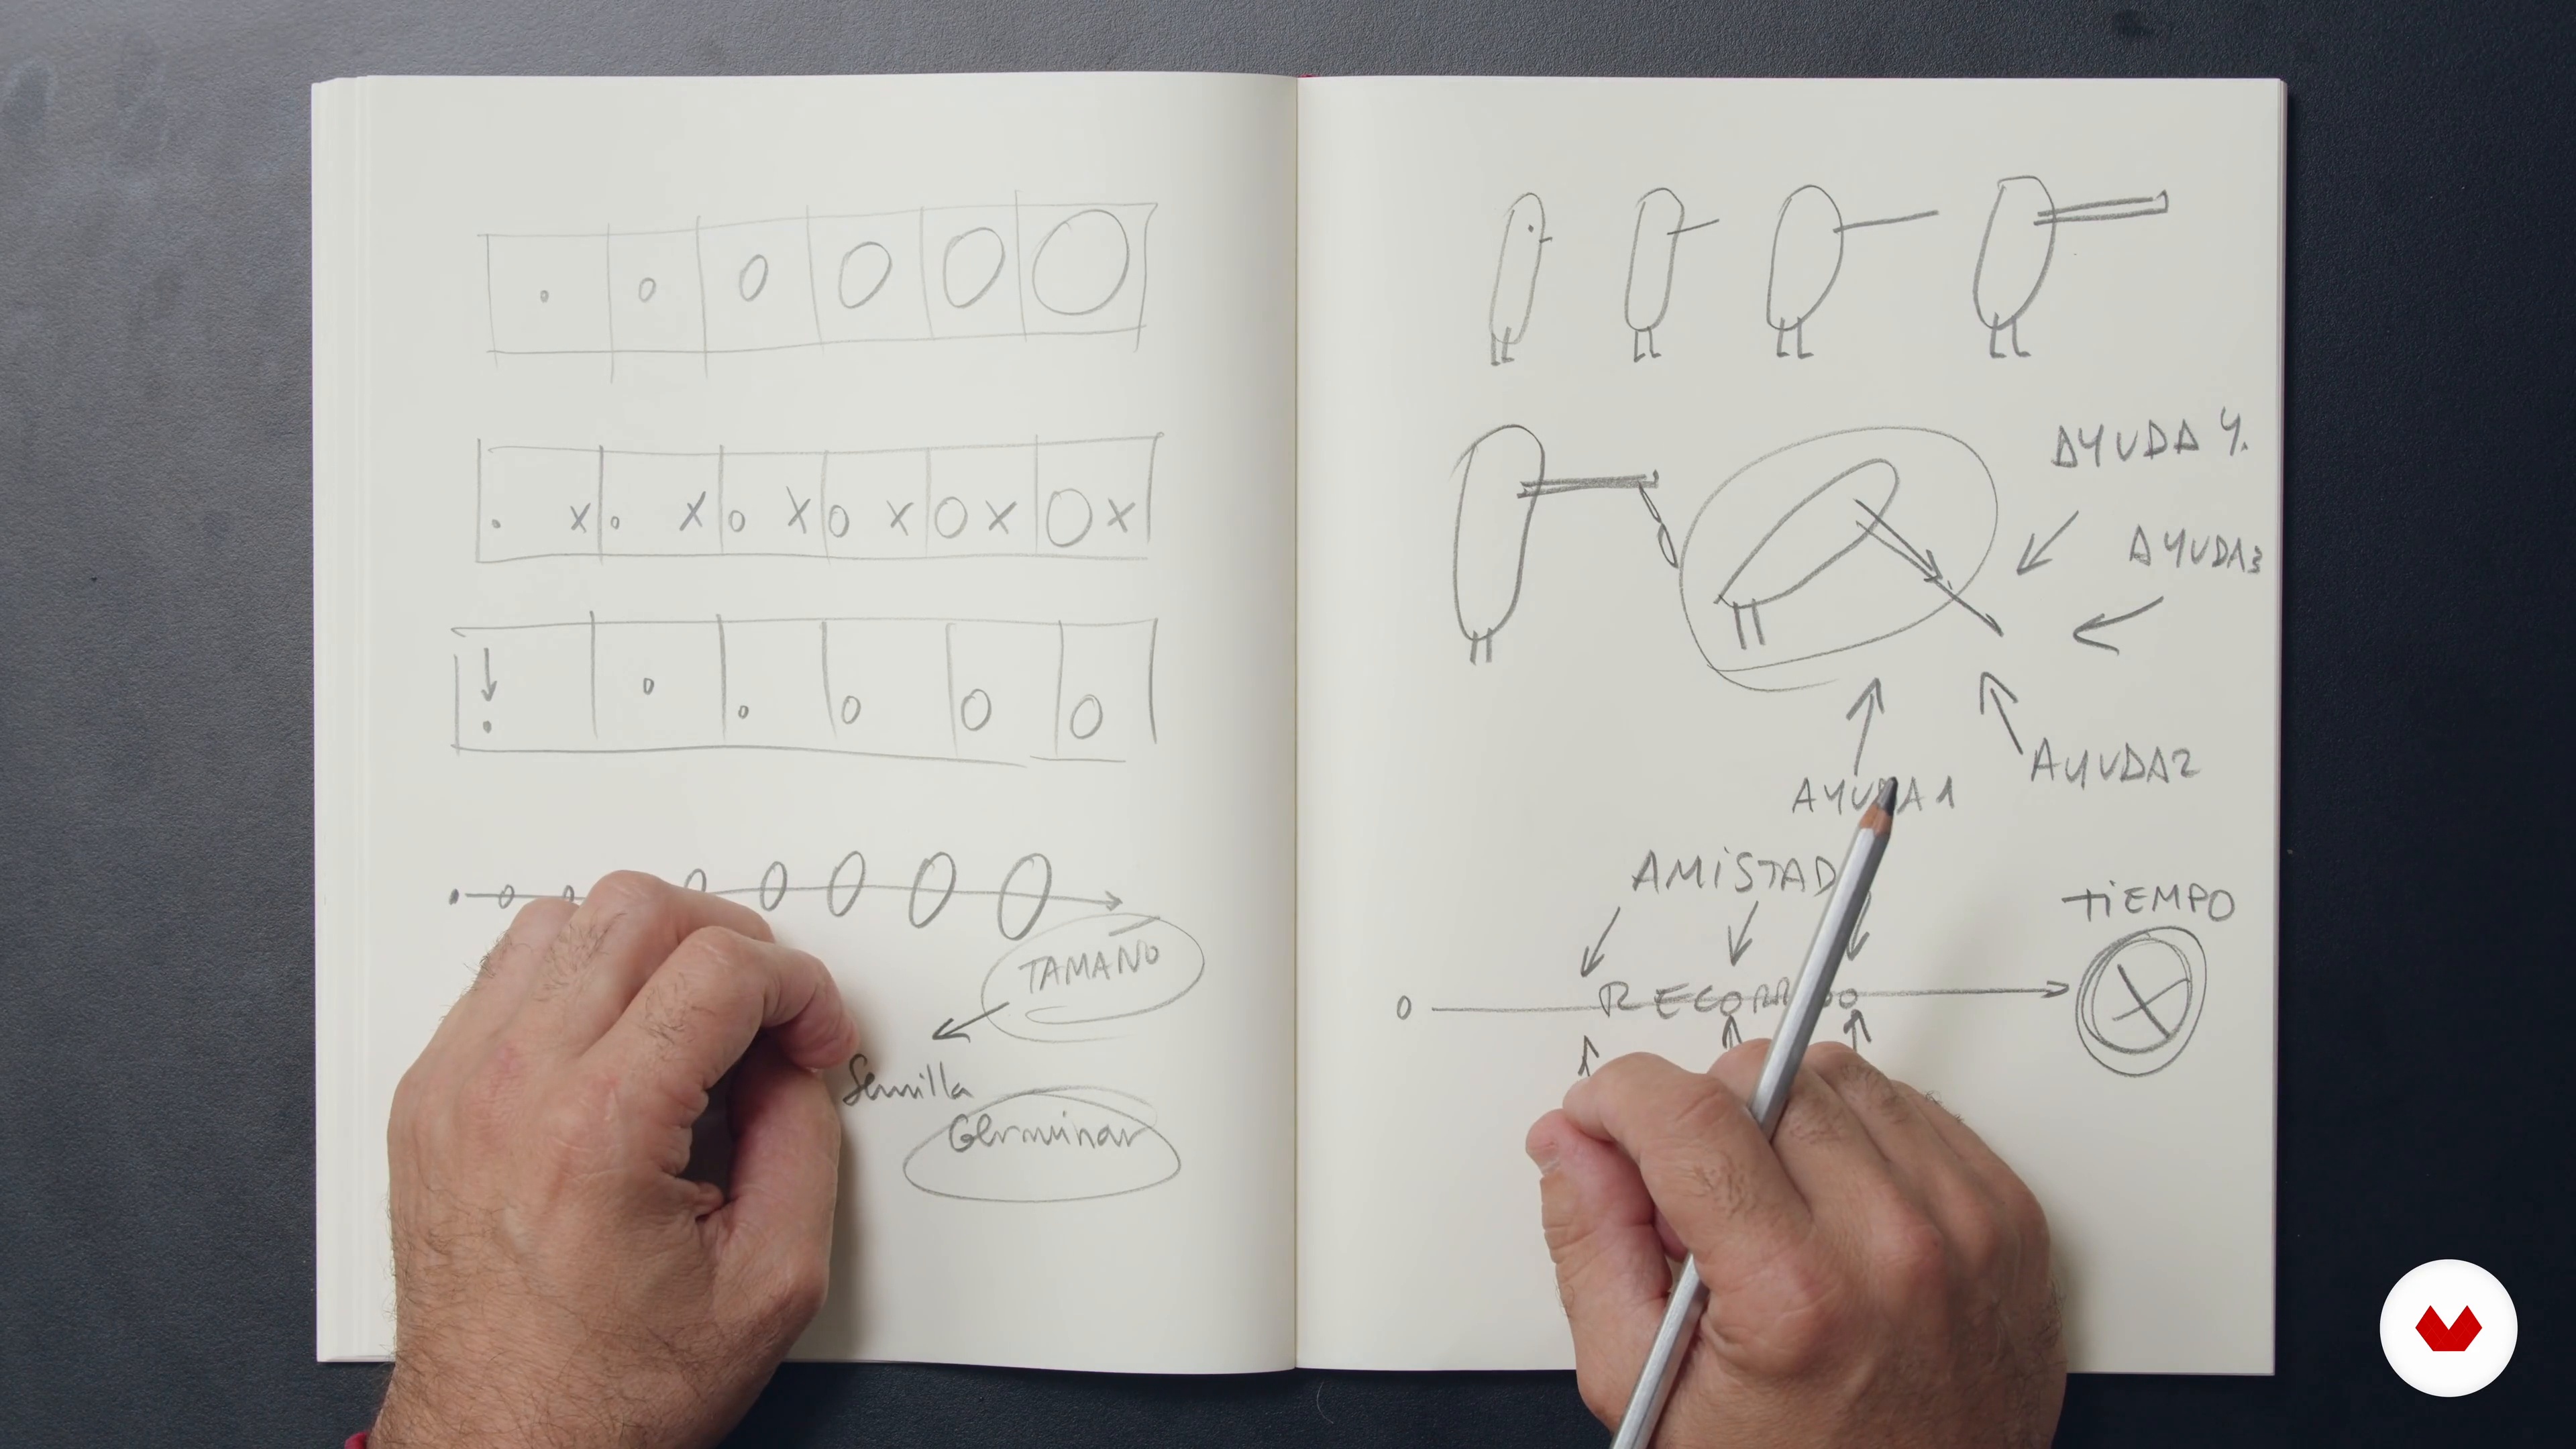 TAMAÑO
Semilla
Germinar
AYUDA 4.
AYUDA3
AYUDA2
AYUDA 1
AMISTAD
TIEMPO
0 RECORRIDO X